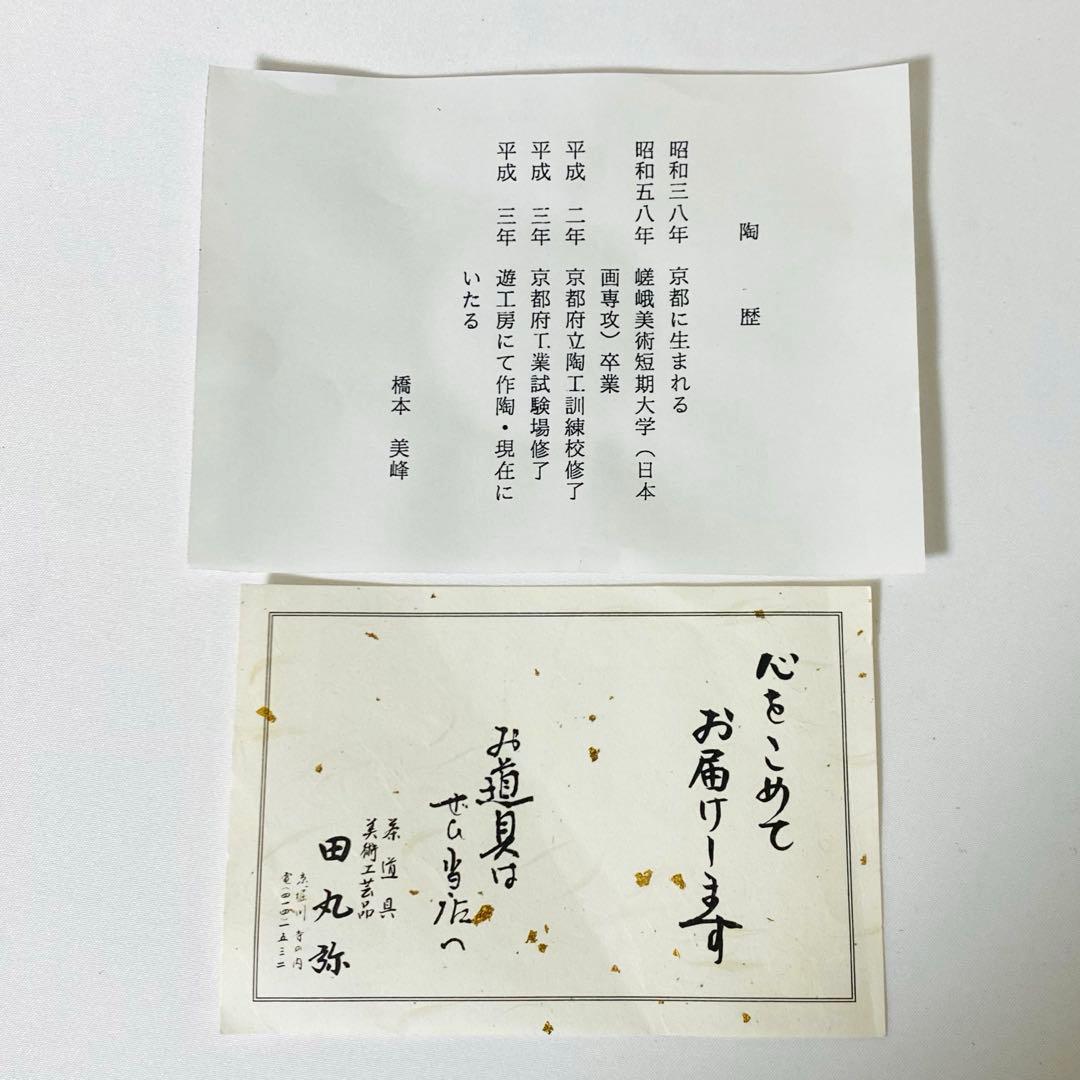 陶歴
昭和三八年 京都に生まれる
昭和五八年 嵯峨美術短期大学（日本
画専攻）卒業
平成 二年 京都府立陶工訓練校修了
平成 三年 京都府工業試験場修了
平成 三年 遊工房にて作陶・現在に
いたる
橋本 美峰
心をこめて
お届けします
お道具は
ぜひ当店へ
茶道具
美術工芸品
田丸弥
京・堀川 寺の内
電(四一四)一五三二